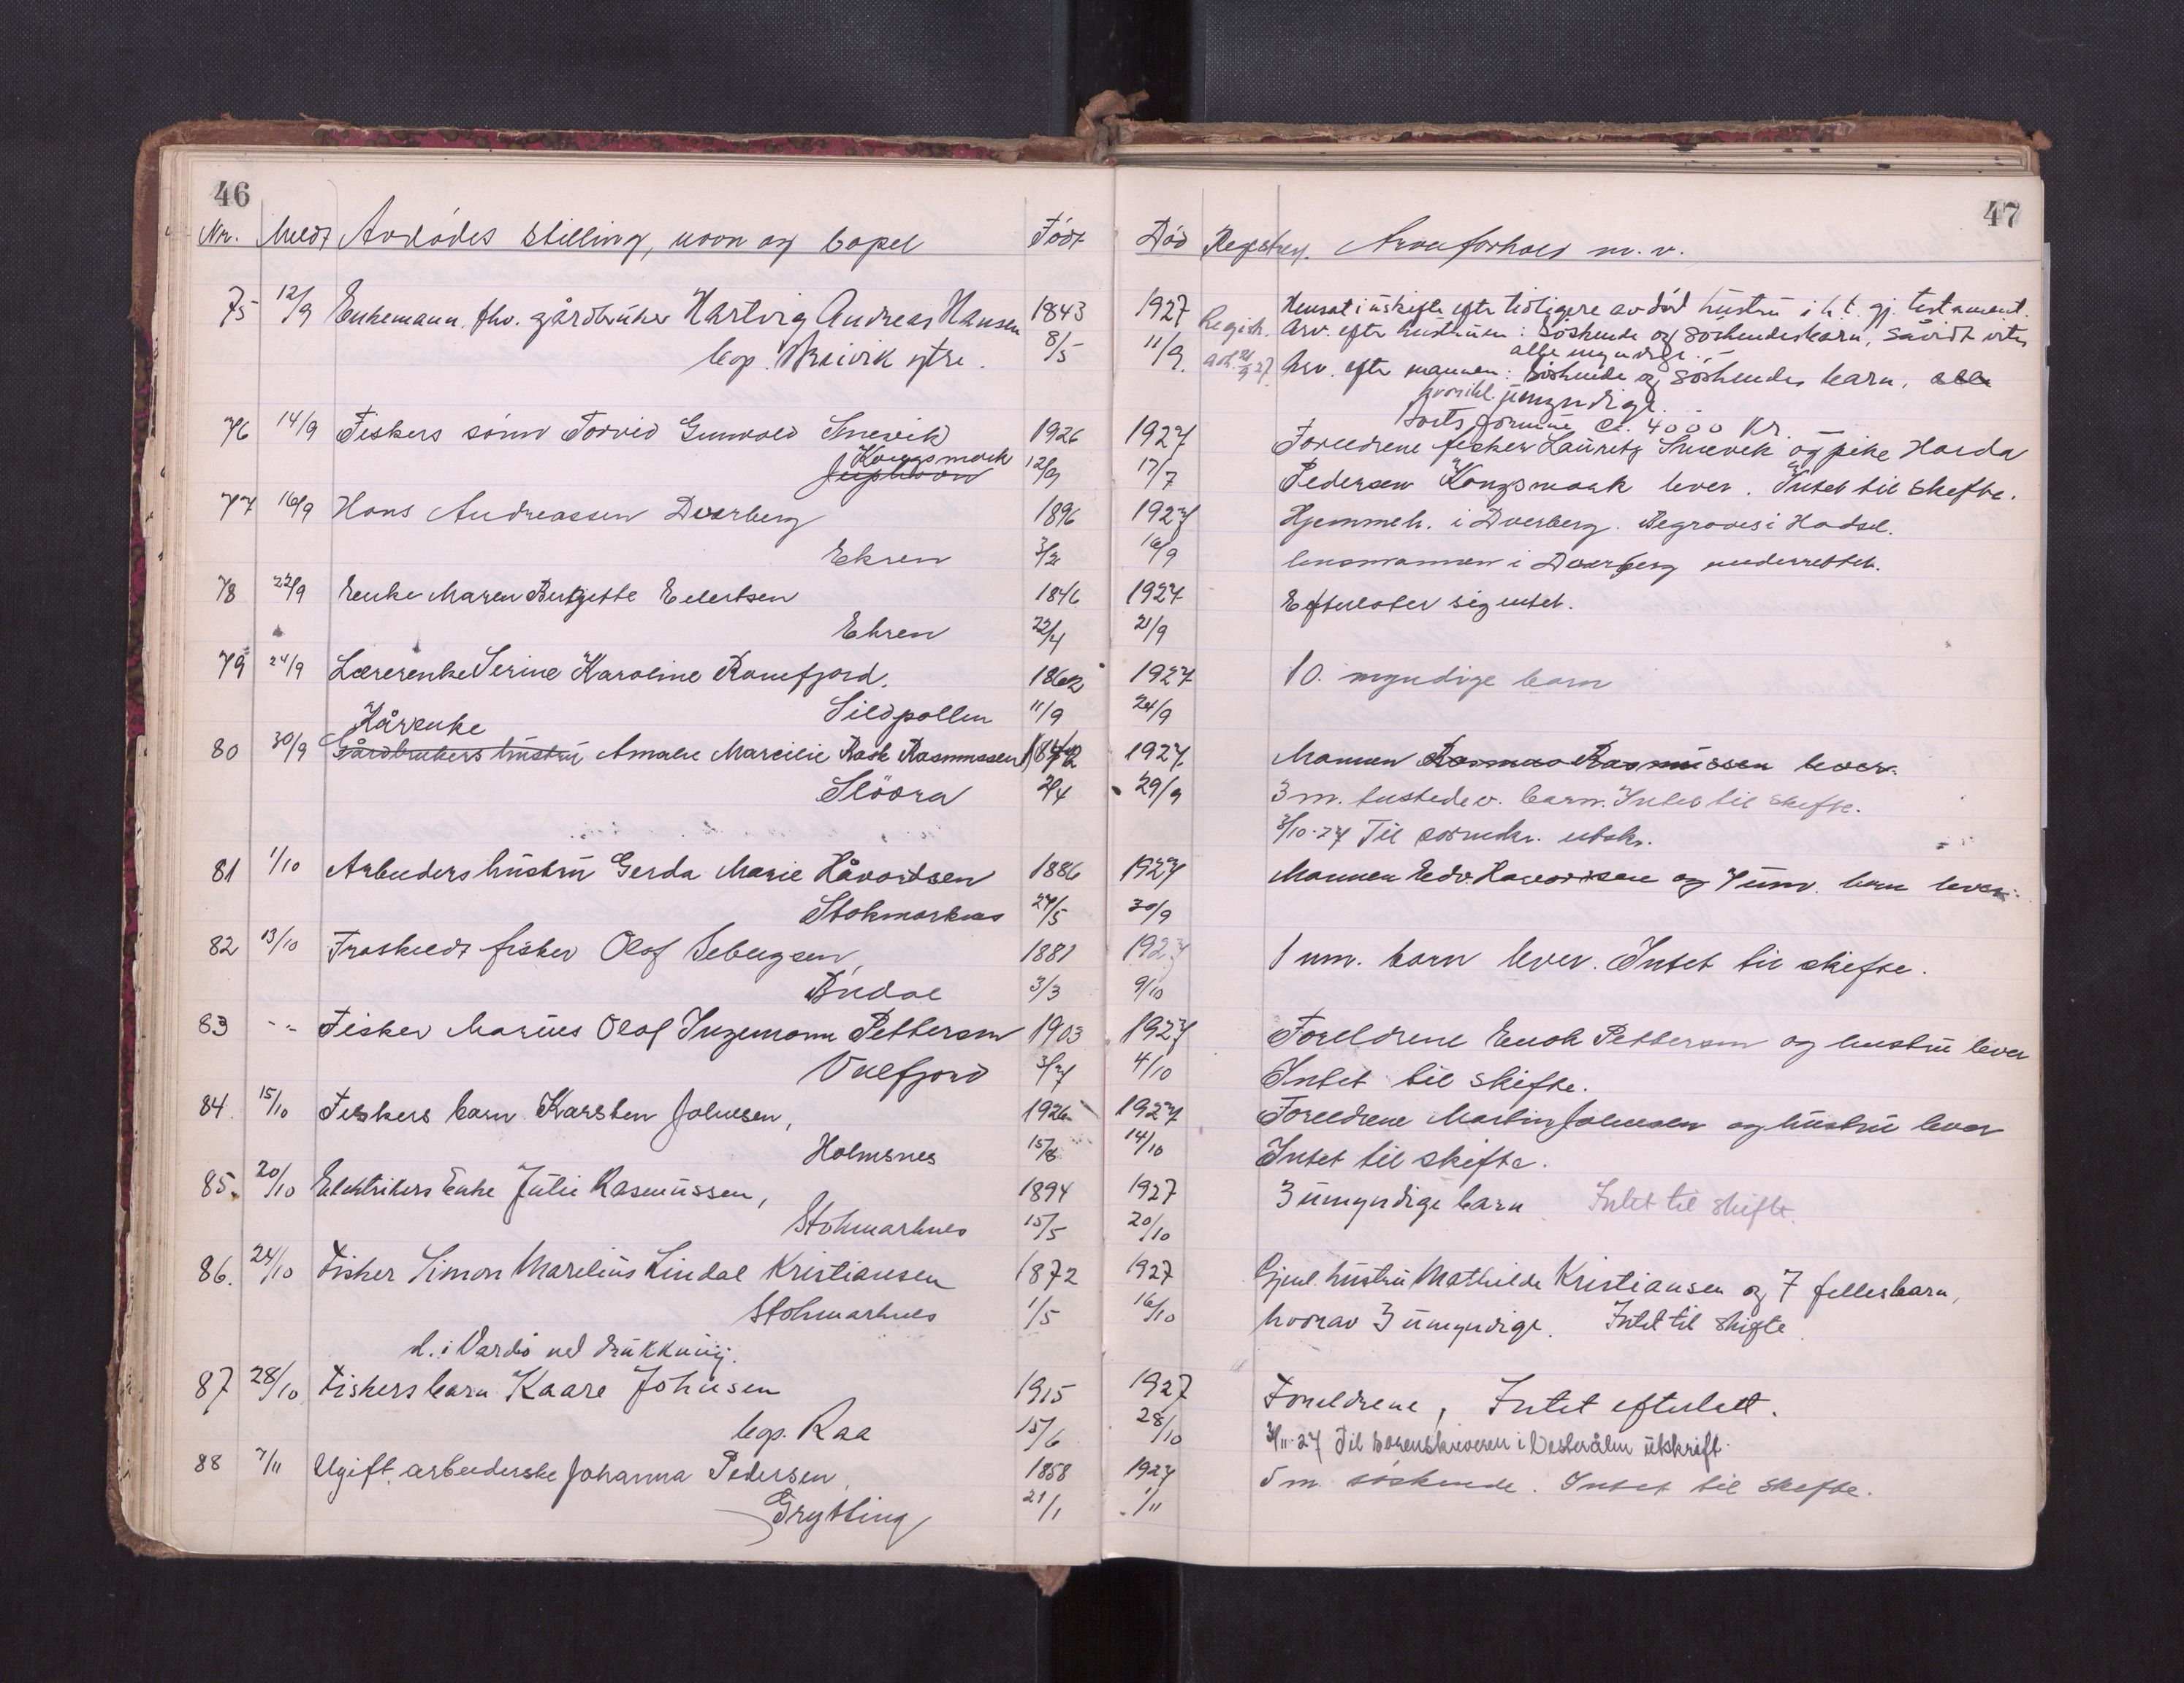 46
Nr. Meldt Avdødes stilling, navn og bopel Født
75 12/9 Enkemann fhv. gårdbruker Hartvig Andreas Hansen 1843
bop. Breivik ytre. 8/5
76 14/9 Fiskers sønn Torvid Gunvald Snevik 1926
Kongsmark 12/9
77 16/9 Hans Andreassen Dverberg 1896
Ekren
78 22/9 Enke Maren Bergitte Edertsen 1846
Ekren 22/4
79 24/9 Lærerenke Serine Karoline Ramfjord. 1862
Sildpollen 11/9
Kårenke
80 30/9 Gårdbrukers hustru Amalie Marcilie Rask Rasmussen 1842
Slåora 2/4
81 1/10 Arbeiders hustru Gerda Marie Håvardsen 1886
Stokmarknes 24/5
82 13/10 Fraskildt fisker Olaf Sebergsen, 1881
Budal 3/3
83 -"- Fisker Marius Olaf Ingemann Pettersen 1903
Valfjord 3/7
84. 15/10 Fiskers barn Karsten Johnsen, 1926
Holmsnes 15/8
85. 20/10 Elektrikers Enke Julie Rasmussen, 1894
Stokmarknes 15/5
86. 24/10 Fisker Simon Marelius Lindal Kristiansen 1872
Stokmarknes 1/5
d. i Vardø ved drukkning.
87 28/10 Fiskers barn Kaare Johnsen 1915
bop. Raa 15/6
88 7/11 Ugift arbeiderske Johanna Pedersen, 1858
Grytting 21/1
47
Død Registrer. Arveforhold m. v.
1927 Hensat i uskifte efter tidligere avdød hustru i h. t. gj. testament.
Registr. Arv. efter hustruen: Søskende og søskendesbarn, såvidt vites
11/9. alle myndige.
Arv. efter mannen: Søskende og søskendes barn, alle
hvorihl. umyndige.
Borts formue ca. 4000 Kr.
1927 Foreldrene fisker Lauritz Snevik og pike Harda
17/7 Pedersen Kongsmark lever. Intet til skifte.
1927 Hjemmeh. i Dverberg. Begraves i Hadsel.
16/9 lensmannen i Dverberg underrettet.
1927 Efterlater sig intet.
21/9
1927 10. myndige barn
24/9
1927 Mannen Rasmus Rasmussen lever.
29/9 3 m. barn. Intet til skifte.
3/10-27 Til sorenskr. utskr.
1927 Mannen Edv. Havardsen og 7 um. barn lever.
30/9
1927 1 um. barn lever. Intet til skifte.
9/10
1927 Foreldrene Enok Pettersen og hustru lever
4/10 Intet til skifte.
1927 Foreldrene Martin Johnsen og hustru lever
14/10 Intet til skifte.
1927 3 umyndige barn Intet til skifte.
20/10
1927 Gjenl. hustru Mathilde Kristiansen og 7 fellesbarn,
16/10 hvorav 3 umyndige. Intet til skifte.
1927 Foreldrene, Intet efterlatt.
28/10 3/11-27 Til Sorenskriveren i Vesterålen utskrift.
1927 5 m. søskende. Intet til skifte.
1/11